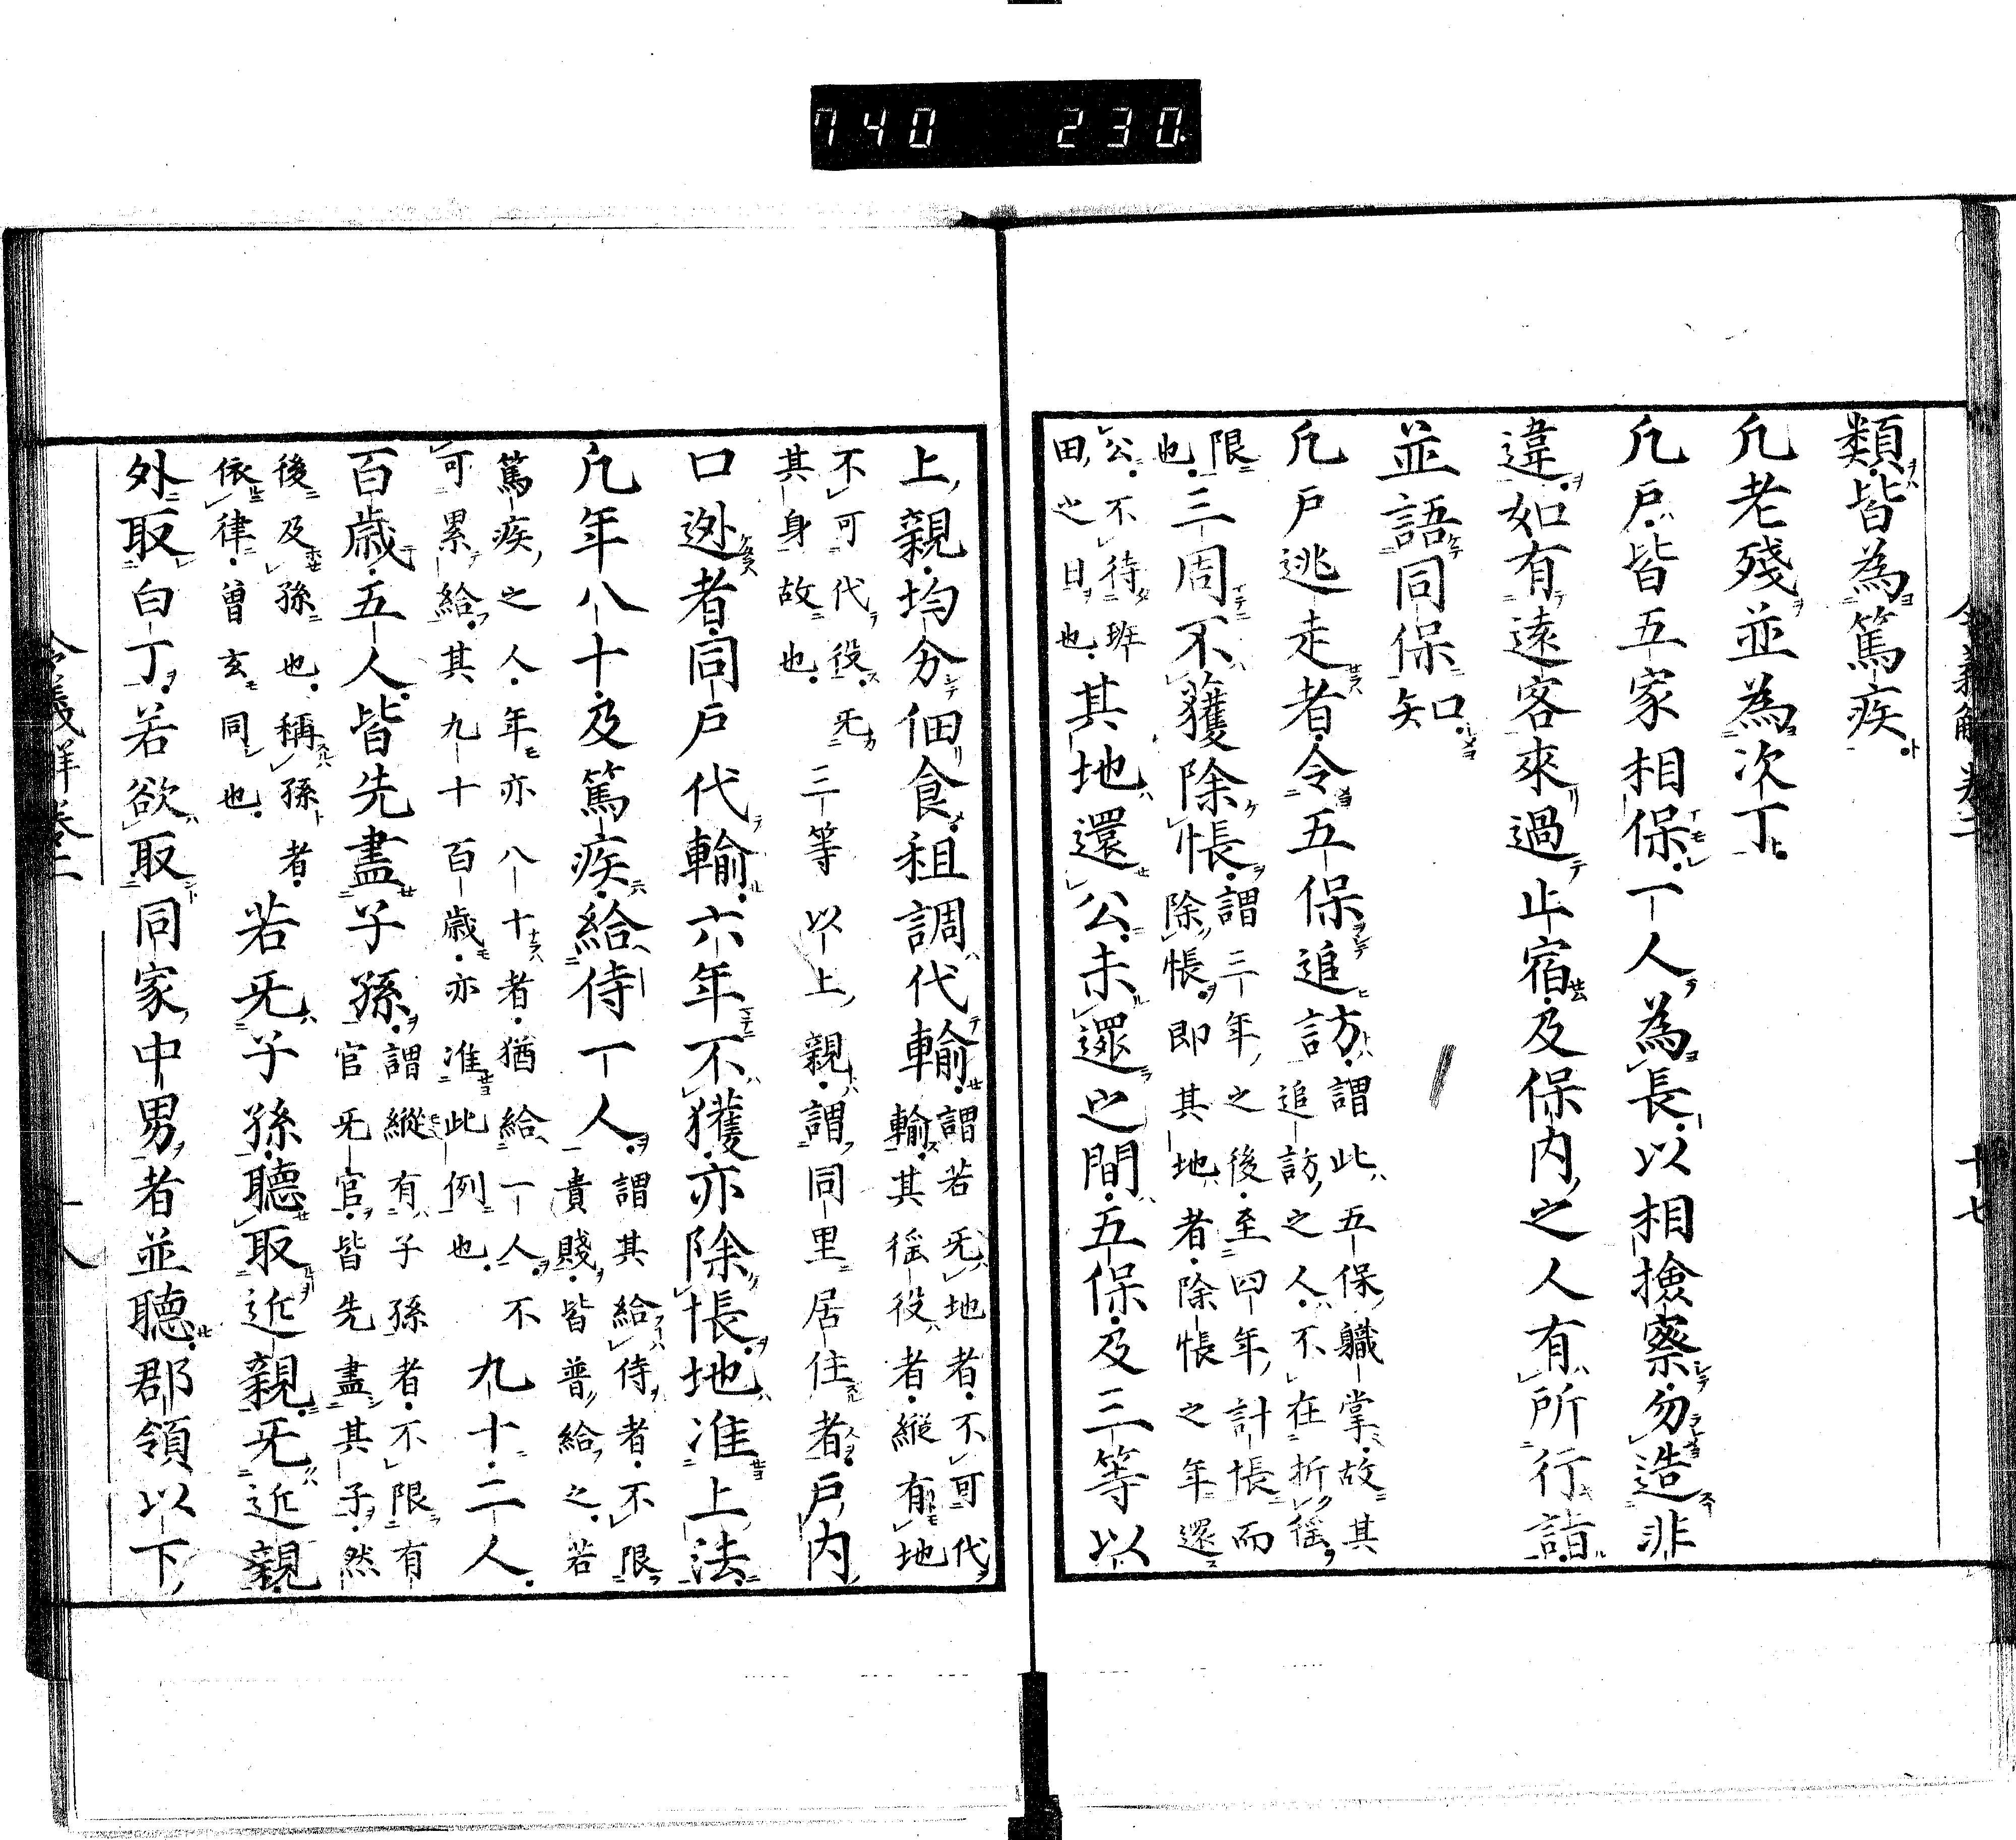 740 230
令義解卷二 十七
類皆為篤疾
凢老殘並為次丁
凢戸皆五家相保一人為長以相撿察勿造非
違如有遠客來過止宿及保内之人有所行詣
並語同保知
凢戸逃走者令五保追訪謂此五保職掌故其追訪之人不在折徭
限也三周不獲除帳謂三年之後至四年計帳而除帳即其地者除帳之年還
公不待班田之日也其地還公未還之間五保及三等以
上親均分佃食租調代輸謂若无地者不可代輸其徭役者縱有地
不可代役无其身故也三等以上親謂同里居住者戸内
口逃者同戸代輸六年不獲亦除帳地准上法
凢年八十及篤疾給侍一人謂其給侍者不限貴賤皆普給之若
篤疾之人年亦八十者猶給一人不可累給其九十百歳亦准此例也九十二人
百歳五人皆先盡子孫謂縱有子孫者不限有官无官皆先盡其子然
後及孫也稱孫者依律曾玄同也若无子孫聽取近親无近親
外取白丁若欲取同家中男者並聽郡領以下
令義解卷二 十八